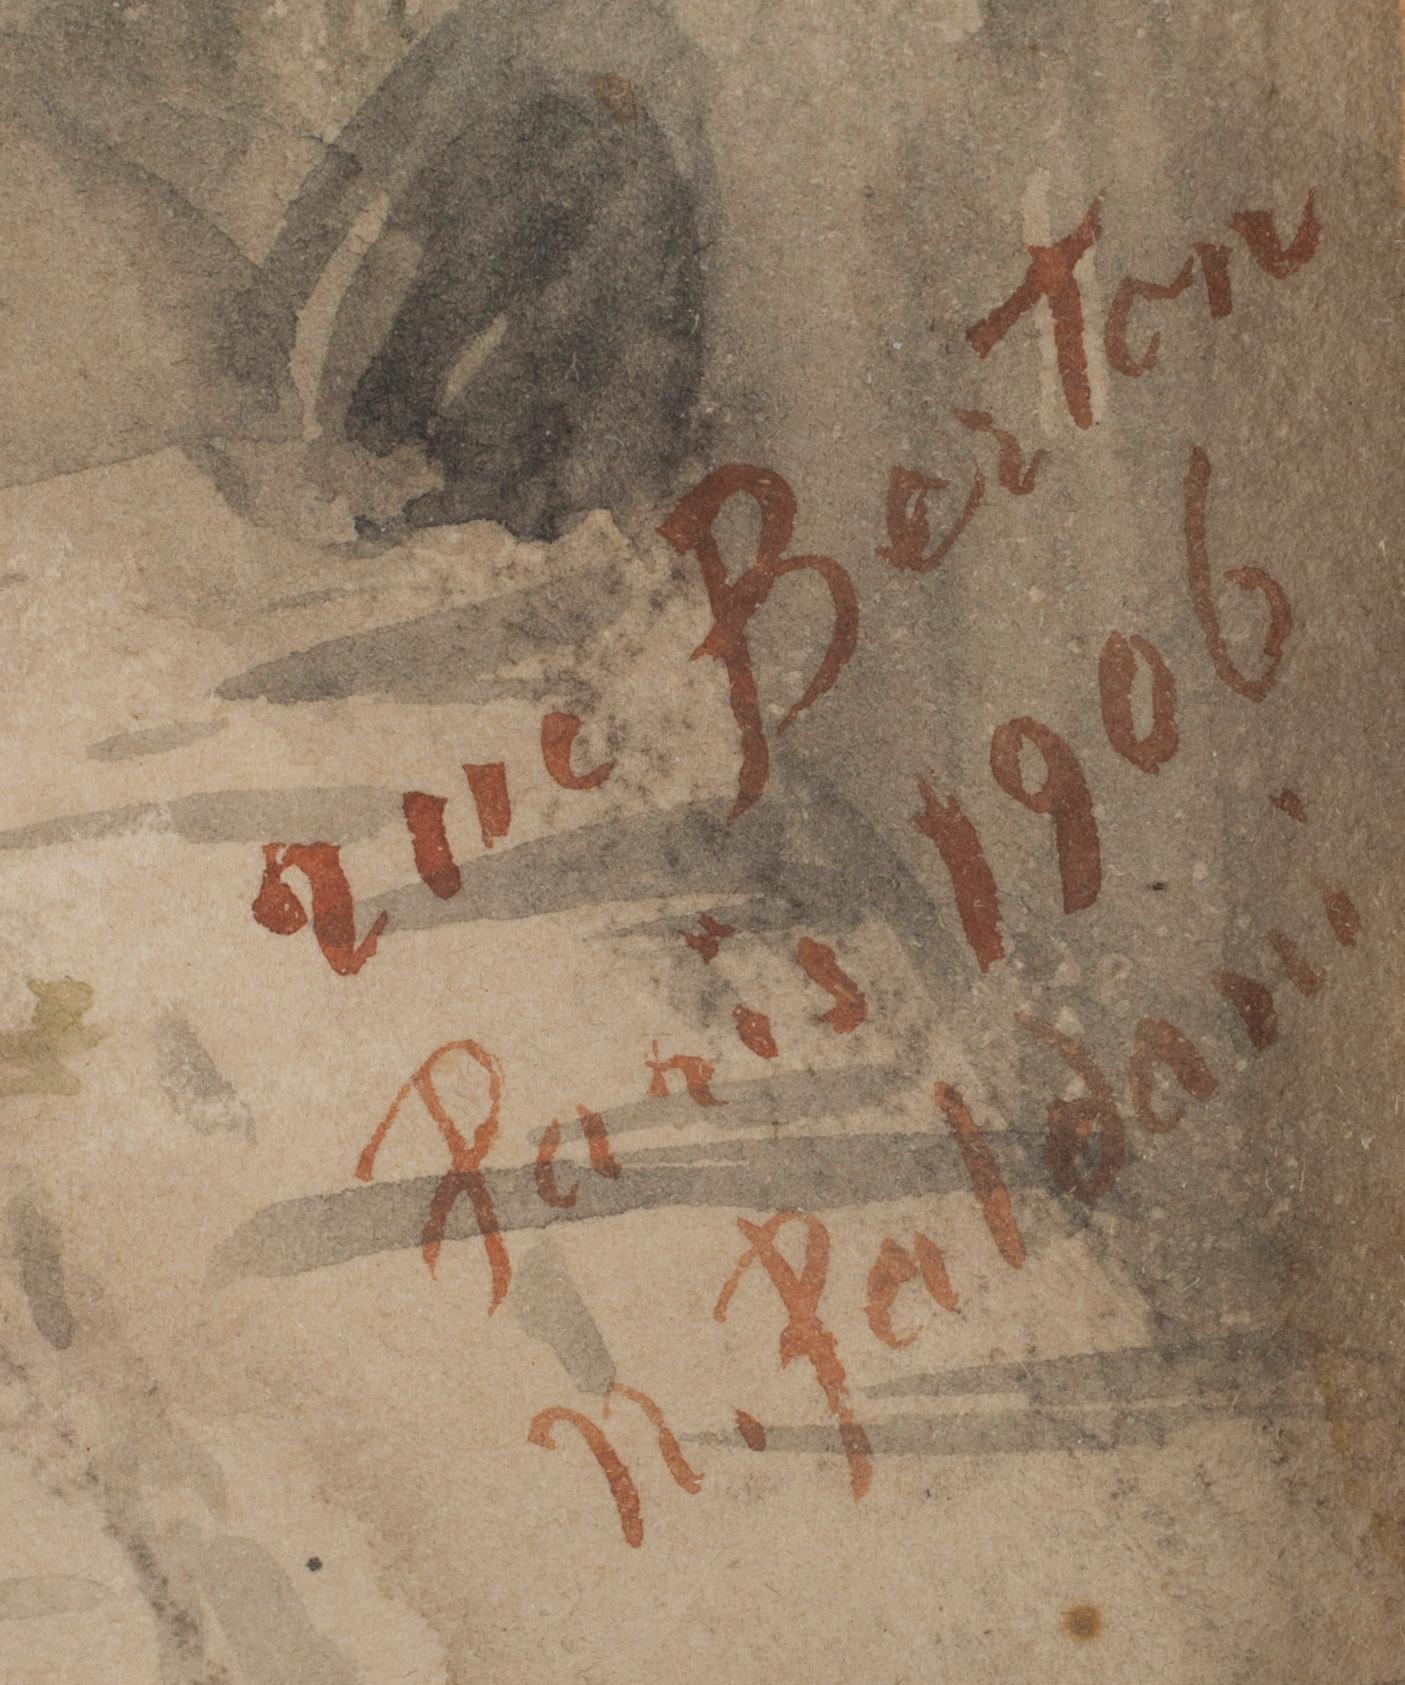 Berton
Paris 1906
N. Paldani